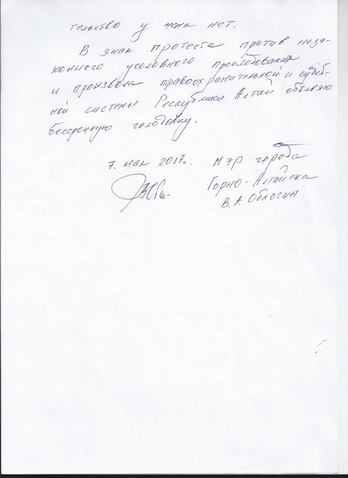 тельство у меня нет.
В знак протеста против неза-
конного уголовного преследования
и произвола правоохранительной и судеб-
ной системы Республики Алтай объявляю
бессрочную голодовку.
7. мая 2017г. мэр города
Горно-Алтайска
В.А. Облогин